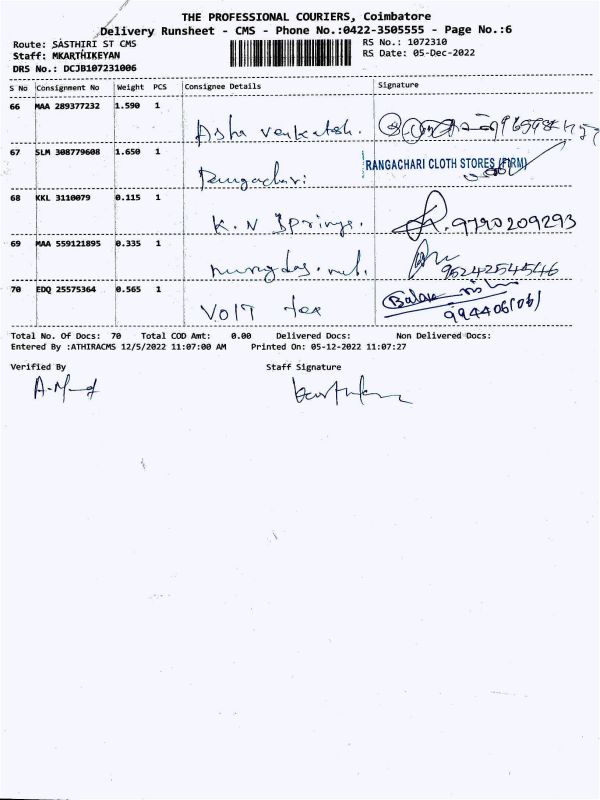 THE PROFESSIONAL COURIERS, Coimbatore
Delivery Runsheet - CMS - Phone No.:0422-3505555 - Page No.:6
Route: SASTHIRI ST CMS
RS No.: 1072310
Staff: MKARTHIKEYAN
RS Date: 05-Dec-2022
DRS No.: DCJB107231006
S No Consignment No Weight PCS Consignee Details Signature
66 MAA 289377232 1.590 1
Asha Venkatesh.
67 SLM 308779608 1.650 1
RANGACHARI CLOTH STORES (FIRM)
Rangachari
68 KKL 3110079 0.115 1
K. N Springs. 9790209293
69 MAA 559121895 0.335 1
9524254546
70 EDQ 25575364 0.565 1
Volt tex
Total No. Of Docs: 70 Total COD Amt: 0.00 Delivered Docs: Non Delivered Docs:
Entered By :ATHIRACMS 12/5/2022 11:07:00 AM Printed On: 05-12-2022 11:07:27
Verified By Staff Signature